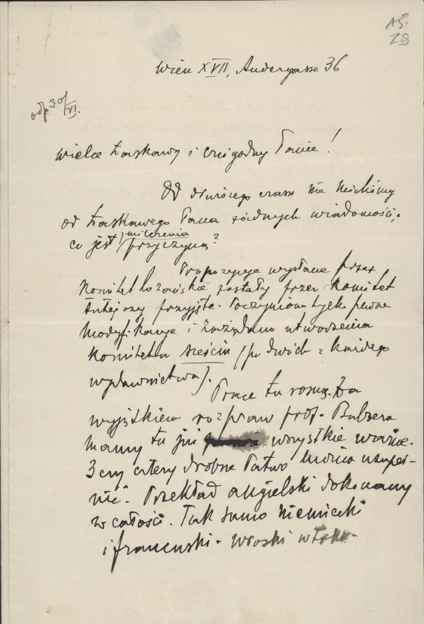 28
Wien XVII, Andergasse 36
odp. 30/VI.
Wielce Łaskawy i czcigodny Panie!
Od dłuższego czasu nie mieliśmy
od Łaskawego Pana żadnych wiadomości,
co jest milczenia przyczyną?
Propozycye wysłane przez
Komitet zostały przez Komitet
tutejszy przyjęte. Poczyniono tylko pewne
modyfikacye i zażądano utworzenia
komitetu sześciu (po dwóch z każdego
wydawnictwa).
Prace tu rosną. Za
wyjątkiem rozpraw prof. Balzera
mamy tu już wszystkie ważne.
3 czy cztery drobne łatwo można uzupeł-
nić. Przekład angielski dokonany
w całości. Tak samo niemiecki
i francuski. Włoski w